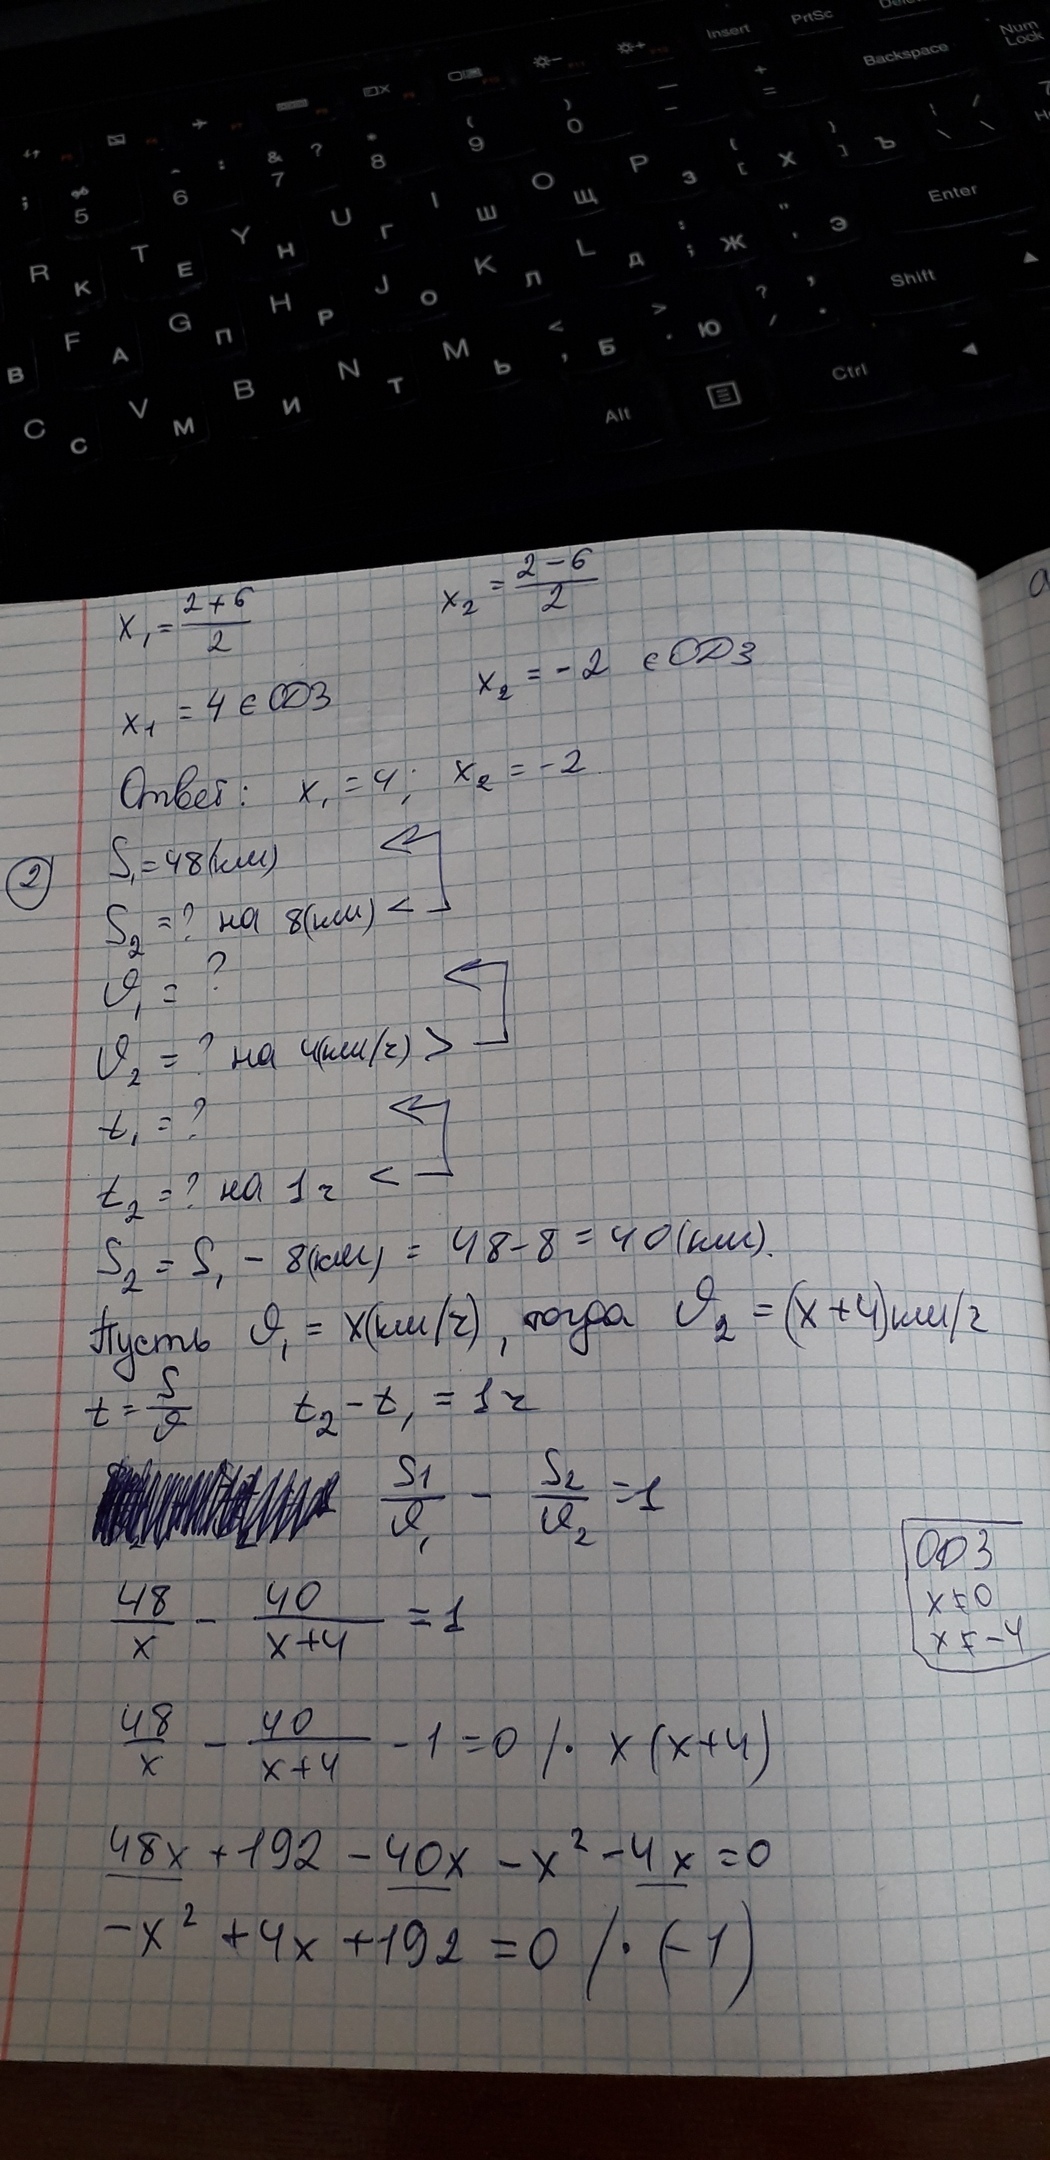 Insert PrtSc Delete
Backspace Num Lock
; 5 6 : & 7 ? * 8 ( 9 ) 0 _ - + =
R К T Е Y Н U Г I Ш O Щ P З [ Х ] Ъ \ / Enter
F А G П H Р J О K Л L Д : ; Ж " ' Э Shift
В C С V М B И N Т M Ь < , Б > . Ю ? / , . Alt Ctrl
x₁ = (2+6)/2 x₂ = (2-6)/2
x₁ = 4 ∈ ОДЗ x₂ = -2 ∈ ОДЗ
Ответ: x₁ = 4; x₂ = -2
② S₁ = 48(км)
S₂ = ? на 8(км) <
𝜗₁ = ?
𝜗₂ = ? на 4(км/ч) >
t₁ = ?
t₂ = ? на 1ч <
S₂ = S₁ - 8(км) = 48-8 = 40(км).
Пусть 𝜗₁ = x(км/ч), тогда 𝜗₂ = (x+4)км/ч
t = S/𝜗 t₂ - t₁ = 1ч
S₁/𝜗₁ - S₂/𝜗₂ = 1
ОДЗ
x ≠ 0
x ≠ -4
48/x - 40/(x+4) = 1
48/x - 40/(x+4) - 1 = 0 /· x(x+4)
48x + 192 - 40x - x² - 4x = 0
-x² + 4x + 192 = 0 /· (-1)